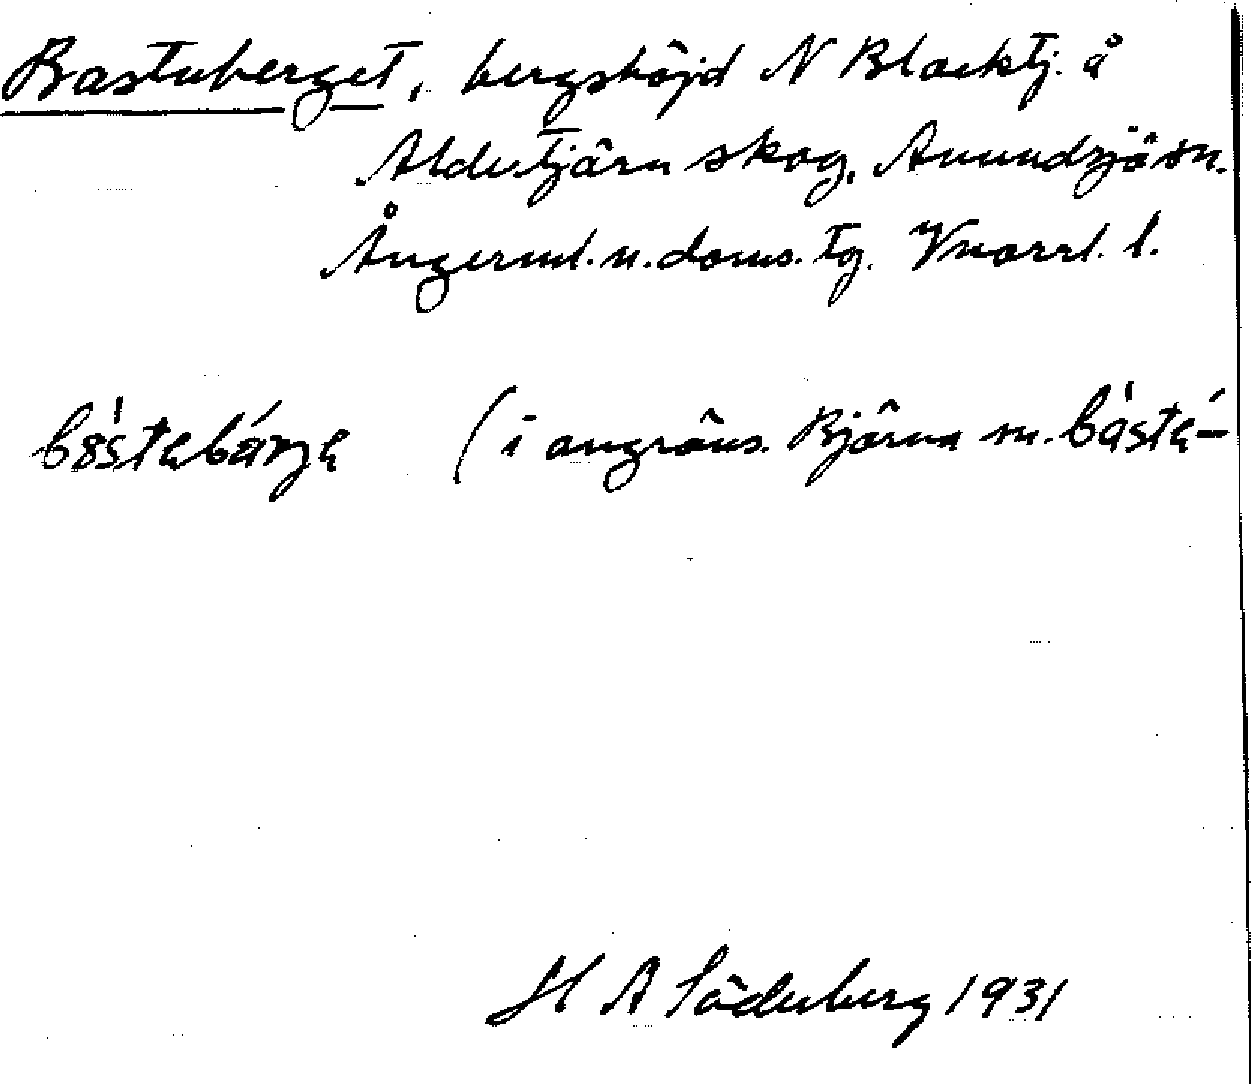 Bastuberget, bergshöjd N Blacktj. å
Aldertjärn skog, Anundsjö sn.
Ångerml. n. doms. tg. Vnorrl. l.
(i angräns. Björna sn. båsta-
H A Söderberg 1931